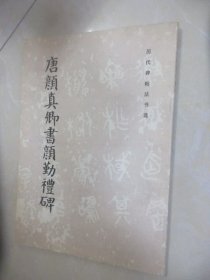 历代碑帖法书选
唐顏真卿書顏勤禮碑